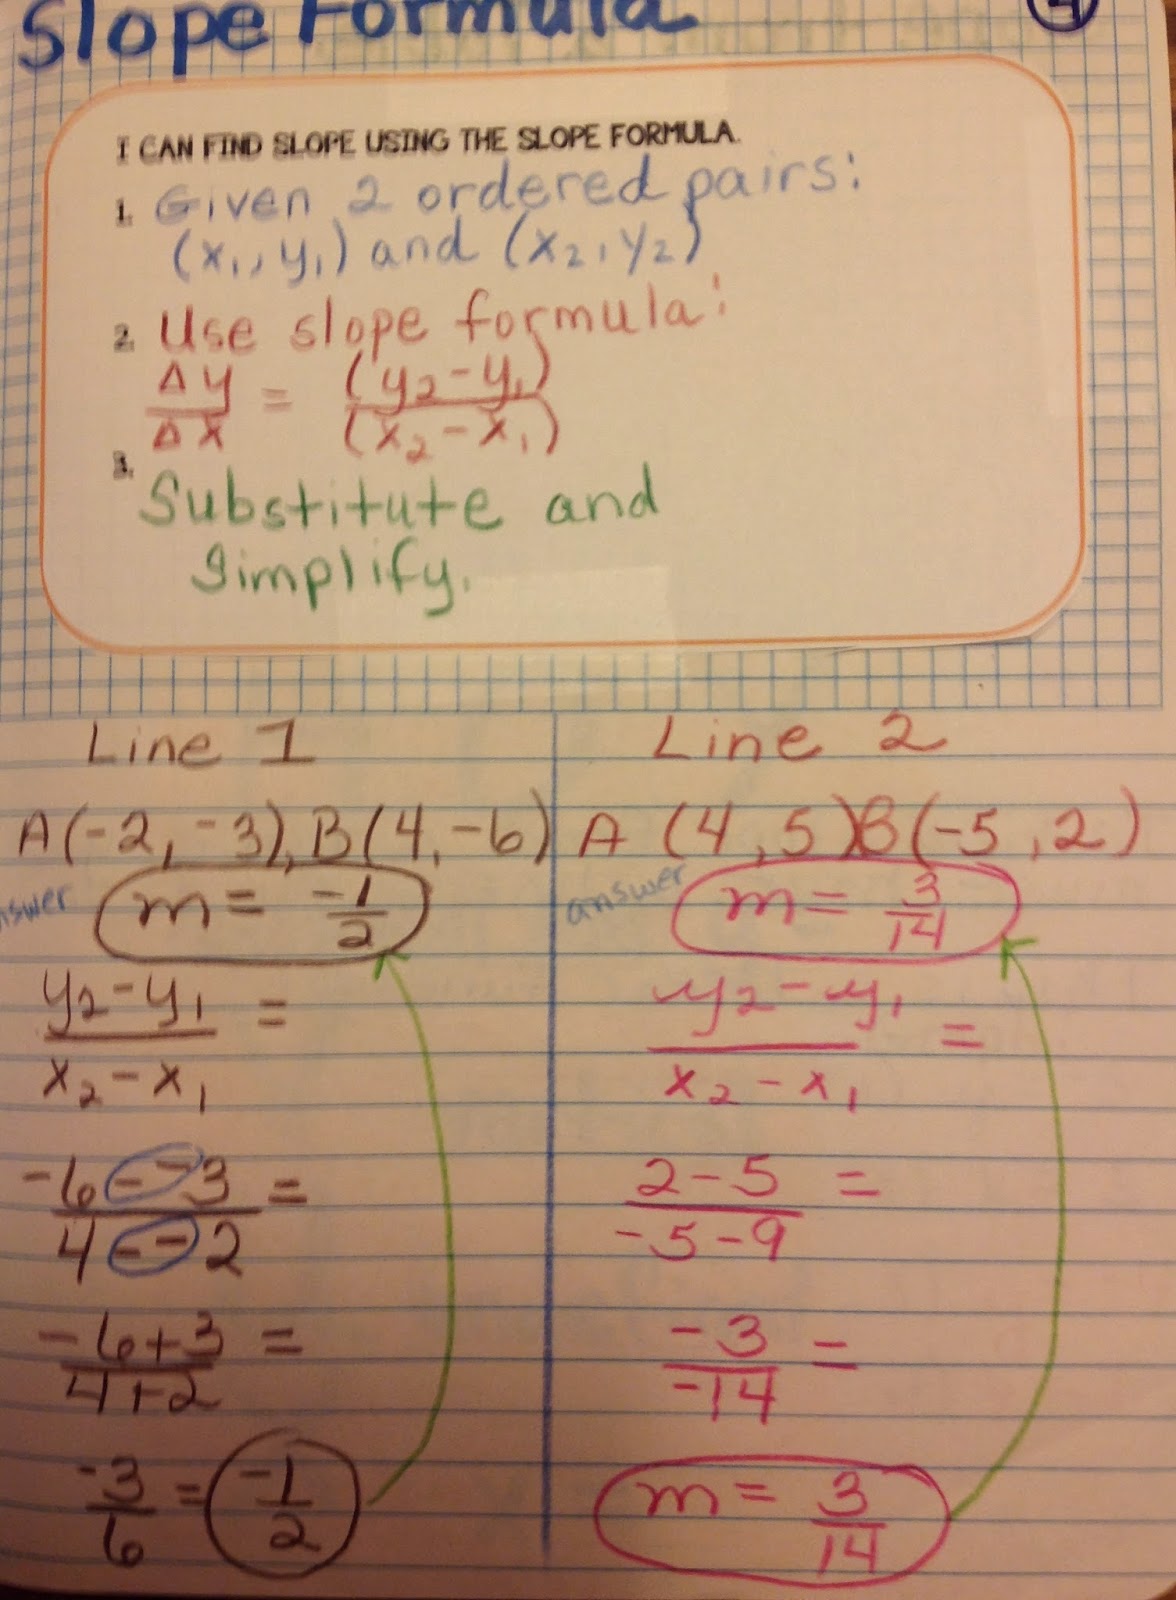 Slope Formula
I CAN FIND SLOPE USING THE SLOPE FORMULA.
1. Given 2 ordered pairs:
(x₁, y₁) and (x₂, y₂)
2. Use slope formula:
Δy/Δx = (y₂-y₁)/(x₂-x₁)
3. Substitute and
Simplify.
Line 1
A(-2, -3), B(4, -6)
nswer
m = -1/2
y₂-y₁/x₂-x₁ =
-6--3/4--2 =
-6+3/4+2 =
-3/6 = -1/2
Line 2
A (4, 5) B(-5, 2)
answer
m = 3/14
y₂-y₁/x₂-x₁ =
2-5/-5-9 =
-3/-14 =
m = 3/14